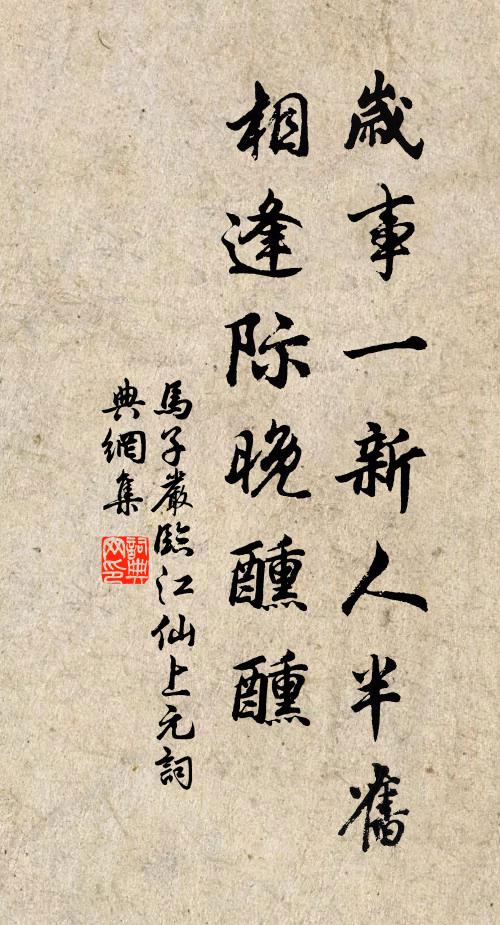 歲事一新人半舊
相逢际晚醺醺
馬子嚴臨江仙上元詞
典網集
詞典网印